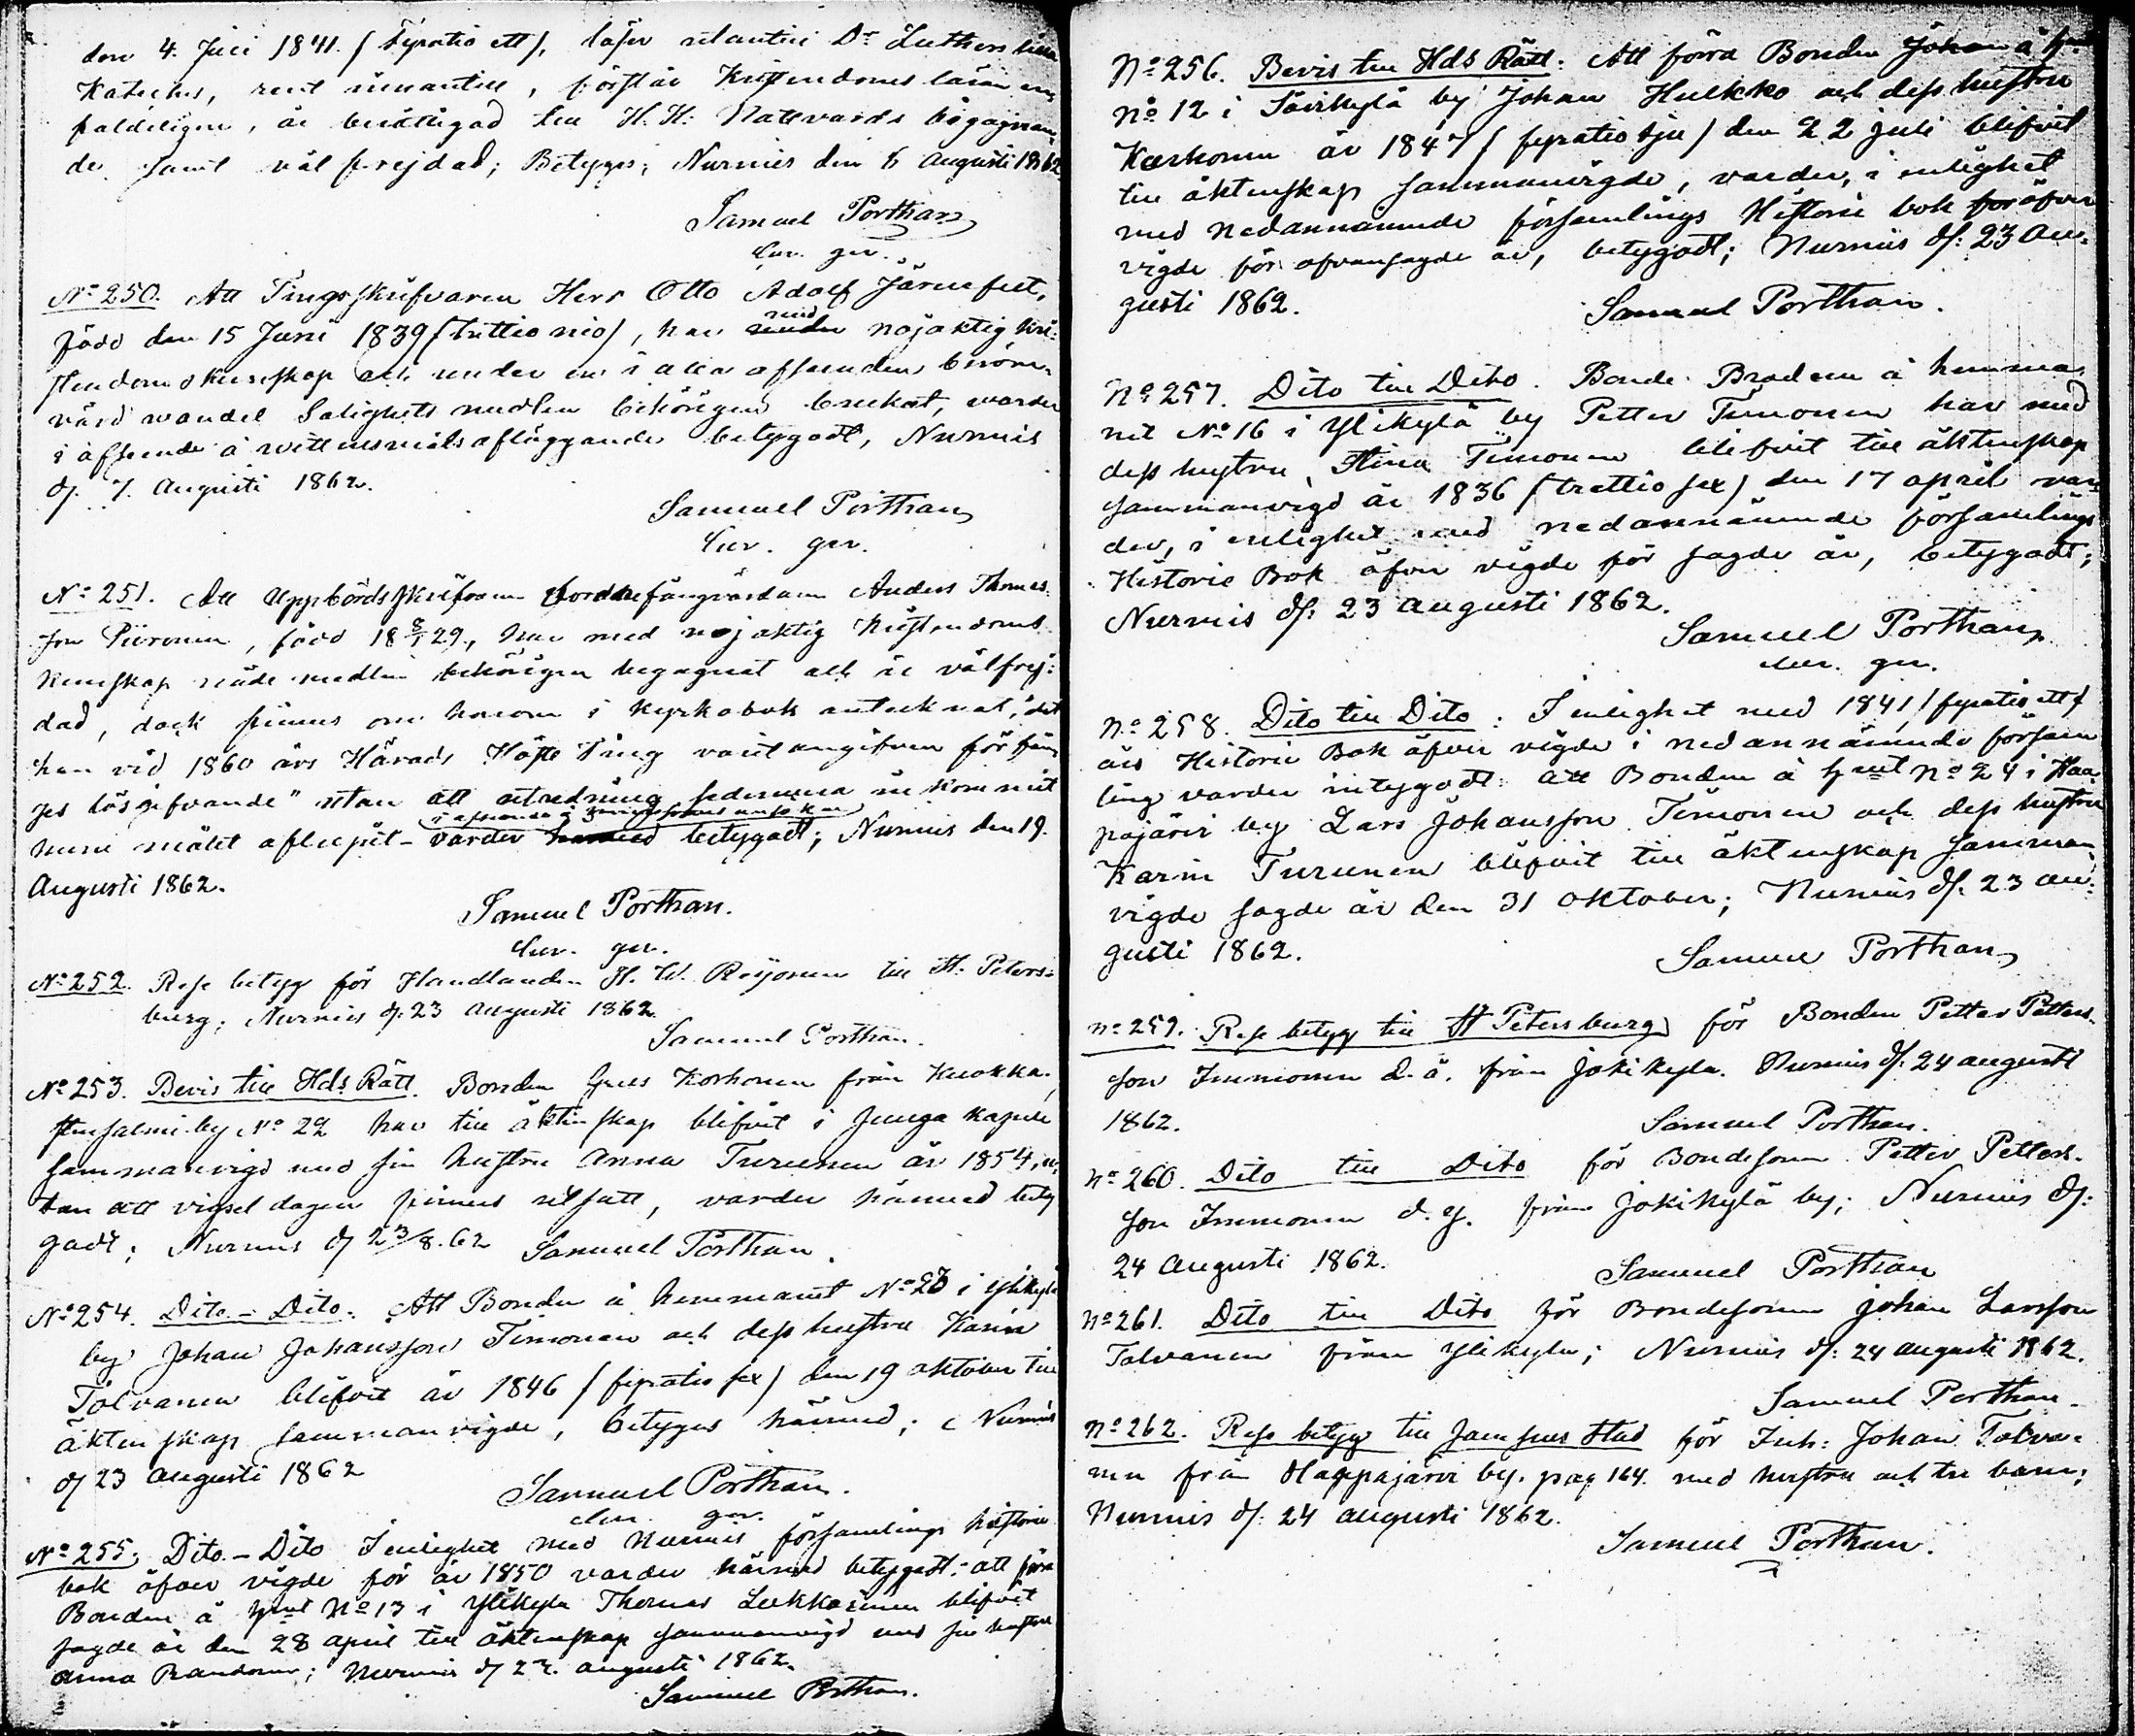 den 4. Juli 1841. (fyratio ett), läser utantill Dr Luthers lilla
Kateches, rent innantill, förstår Kristendoms läran en-
faldeligen, är berättigad till H. H: Nattvards begagnan-
de samt väl frejdad; Betygas; Nurmis den 6 Augusti 1862
Samuel Porthan
Cur. ger.
No 250. Att Tingsskrifvaren Herr Otto Adolf Järnefelt,
född den 15 Juni 1839 (trettio nio), har med nöjaktig kri-
stendomskunskap och under en i alla afseenden beröm-
värd wandel Salighets medlen behörigen brukat, warder
i afseende å wittnesmåls afläggande betygadt, Nurmis
d. 7. Augusti 1862.
Samuel Porthan
Cur. ger.
No 251. Att Uppbördsskrifvaren fordna fångvärdaren Anders Thomas-
son Piironen, född 18 8/1 29., har med nöjaktig Kristendoms
Kunskap nådemedlen behörigen begagnat och är välfrej-
dad, dock finnes om honom i Kyrkobok antecknat, "det
han vid 1860 års Härads Höste Ting varit angifven för fån-
ges lösgifvande" utan att utredning sedermera in kommit
i afseende å
hure målet aflupit - varder betygadt; Nurmis den 19.
Augusti 1862.
Samuel Porthan.
Cur. ger.
No 252. Rese betyg för Handlanden H. W. Reijonen till St. Peters-
burg; Nurmis d. 23 Augusti 1862.
Samuel Porthan.
No 253. Bevis till Hds Rätt. Bonden Grels Korhonen från Kuokka-
stensalmi by No 22 har till äktenskap blifvit i Juuga kapell
sammanvigd med sin hustru Anna Turunen år 1854, u-
tan att vigsel dagen finnes utsatt, varder härmed bety
gadt; Nurmis d 23/8. 62 Samuel Porthan.
No 254. Dito - Dito. Att Bonden å hemmanet No 23 i Ylikylä
by Johan Johansson Timonen och dess hustru Karin
Tolvanen blifvit år 1846 (fyratio sex) den 19 oktober till
äktenskap sammanvigde, betygas härmed; Nurmis
d 23 Augusti 1862
Samuel Porthan.
Cur. ger.
No 255. Dito. - Dito I enlighet med Nurmis församlings historie
bok öfver vigde för år 1850 varder härmed betygadt: att förra
Bonden å hmt No 13 i Ylikylä Thomas Lukkarinen blifvit
sagde år den 28 april till äktenskap sammanvigd med sin hustru
Anna Randonen; Nurmis d 23. augusti 1862.
Samuel Porthan.
No 256. Bevis till Hds Rätt: Att förra Bonden Johan å hmt
No 12 i Savikylä by Johan Hulkko och dess hustru
Korhonen år 1847 (fyratio sju) den 22 juli blifvit
till äktenskap sammanvigde, varder, i enlighet
med nedannämnde församlings Historie bok för öfver
vigde för ofvansagde år, betygadt; Nurmis d: 23 Au-
gusti 1862.
Samuel Porthan.
No 257. Dito till Dito. Bonde Brodren å hemma-
net No 16 i Ylikylä by Petter Timonen har med
dess hustru Stina Timonen blifvit till äktenskap
sammanvigd år 1836 (trettio sex) den 17 april var-
der, i enlighet med nedannämnde församlings
Historie Bok öfver vigde för sagde år, betygadt;
Nurmis d: 23 Augusti 1862.
Samuel Porthan
Cur. ger.
No 258. Dito till Dito: I enlighet med 1841 (fyratio ett)
års Historie Bok öfver vigde i nedannämnde försam
ling varder intygadt: att Bonden å hmt No 24 i Haa
pajärvi by Lars Johansson Timonen och dess hustru
Karin Turunen blifvit till äktenskap samman-
vigde sagde år den 31 oktober; Nurmis d. 23 au-
gusti 1862.
Samuel Porthan
No 259. Rese betyg till St Petersburg för Bonden Petter Petters-
son Immonen d. ä. från Jokikylä. Nurmis d. 24 augusti
1862.
Samuel Porthan.
No 260. Dito till Dito för Bondesonen Petter Petters-
son Immonen d. y. från Jokikylä by; Nurmis d:
24 Augusti 1862.
Samuel Porthan
No 261. Dito till Dito för Bondesonen Johan Larsson
Tolvanen från Ylikylä; Nurmis d: 24 Augusti 1862.
Samuel Porthan.
No 262. Rese betyg till Joensuu Stad för Inh: Johan Tolva-
nen från Haapajärvi by. pag 164. med hustru och tre barn;
Nurmis d: 24 Augusti 1862.
Samuel Porthan.